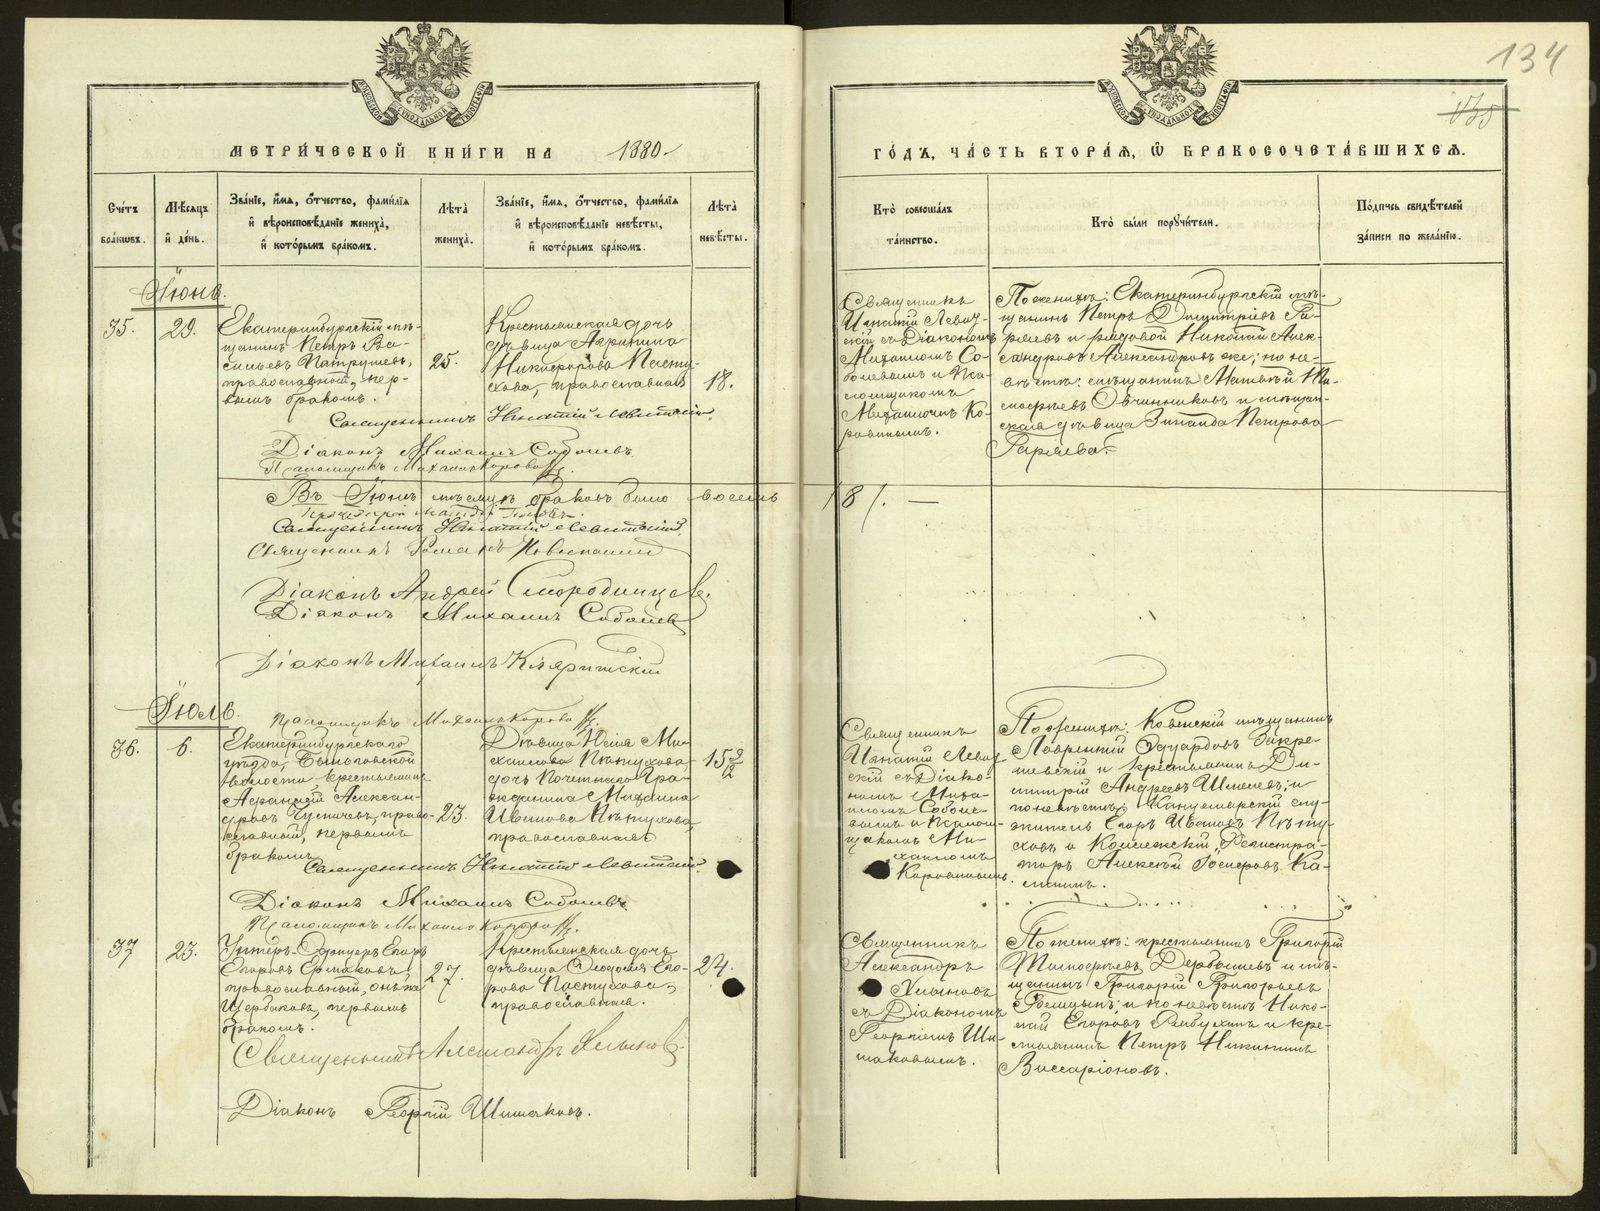 134
135
МЕТРИ́ЧЕСКОЙ КНИ́ГИ НА 1880.
ГО́ДЪ, ЧА́СТЬ ВТОРА́Я, Ѡ БРАКОСОЧЕТА́ВШИХСЯ.
Сче́тъ бра́кѡвъ.
Мѣ́сяцъ и҆ де́нь.
Зва́нїе, и҆́мя, ѻ҆́тчество, фами́лїя и҆ вѣроисповѣ́данїе жениха̀, и҆ кото́рымъ бра́комъ.
Лѣ́та̀ жениха̀.
Зва́нїе, и҆́мя, ѻ҆́тчество, фами́лїя и҆ вѣроисповѣ́данїе невѣ́сты, и҆ кото́рымъ бра́комъ.
Лѣ́та̀ невѣ́сты.
Кто̀ соверша́лъ та́инство.
Кто̀ бы́ли порꙋчи́тели.
По́дпись свидѣ́телей за́писи по жела́нїю.
Іюнь.
35.
29.
Екатеринбургскій мѣ-
щанинъ Петръ Ва-
сильевъ Патрушевъ,
православный, пер-
вымъ бракомъ.
25.
Крестьянская дочь
дѣвица Агрипина
Никифорова Пасту-
хова, православная
18.
Священникъ
Игнатій Левит-
скій съ Діакономъ
Михаиломъ Со-
болевымъ и Пса-
ломщикомъ
Михаиломъ Ко-
ровинымъ.
По женихѣ: Екатеринбургскій мѣ-
щанинъ Петръ Димитріевъ Га-
ряевъ и рядовой Николай Алек-
сандровъ Александровъ же; по не-
вѣстѣ: мѣщанинъ Матвѣй Ти-
мофѣевъ Овчинниковъ и мѣщан-
ская дѣвица Зинаида Петрова
Гаряева.
Священникъ Игнатій Левитскій.
Діаконъ Михаилъ Соболевъ.
Псаломщикъ Михаилъ Коровинъ.
Въ Іюнѣ мѣсяцѣ браковъ было восемь
/8/. —
Священникъ Игнатій Левитскій.
Священникъ
Діаконъ Андрей Смородинцевъ.
Діаконъ Михаилъ Соболевъ
Діаконъ Михаилъ
Псаломщикъ Михаилъ Коровинъ.
Іюль.
36.
6.
Екатеринбургскаго
уѣзда,
волости крестьянинъ
Афанасій Алексан-
дровъ право-
славный, первымъ
бракомъ.
23.
Дѣвица Юлія Ми-
хаилова Пѣтухова
дочь Почетнаго Гра-
жданина Михаила
Иванова Пѣтухова,
православная.
15 9/12
Священникъ
Игнатій Левит-
скій съ Діако-
номъ Миха-
иломъ Соболе-
вымъ и Псалом-
щикомъ Ми-
хаиломъ
Коровинымъ.
По женихѣ: Ковенскій мѣщанинъ
Лаврентій Эдуардовъ Закре-
шевскій и крестьянинъ Ди-
митрій Андреевъ Шмелевъ; и
по невѣстѣ: Канцелярскій слу-
житель Егоръ Ивановъ Пѣту-
ховъ и Коллежскій Регистра-
торъ Алексѣй
Священникъ Игнатій Левитскій.
Діаконъ Михаилъ Соболевъ.
Псаломщикъ Михаилъ Коровинъ.
37
23.
Унтеръ-Офицеръ Егоръ
Егоровъ Ермаковъ,
православный, онъ же
Щербаковъ, первымъ
бракомъ.
27.
Крестьянская дочь
дѣвица Ѳеодосія Его-
рова Пастухова,
православная.
24.
Священникъ
Александръ
Хлыновъ
съ Діакономъ
Георгіемъ Ши-
шаковымъ.
По женихѣ: крестьянинъ Григорій
Тимофѣевъ Дербышевъ и мѣ-
щанинъ Григорій Григорьевъ
и по невѣстѣ Нико-
лай Егоровъ и кре-
стьянинъ Петръ Никитинъ
Виссаріоновъ.
Священникъ Александръ Хлыновъ.
Діаконъ Георгій Шишаковъ.